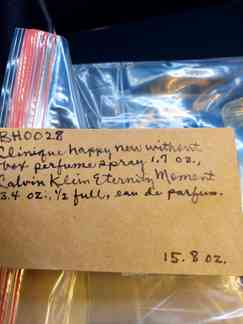 BH0028
Clinique happy new without
box perfume spray 1.7 oz.,
Calvin Klein Eternity Moment
3.4 oz., 1/2 full, eau de parfum.
15.8 oz.